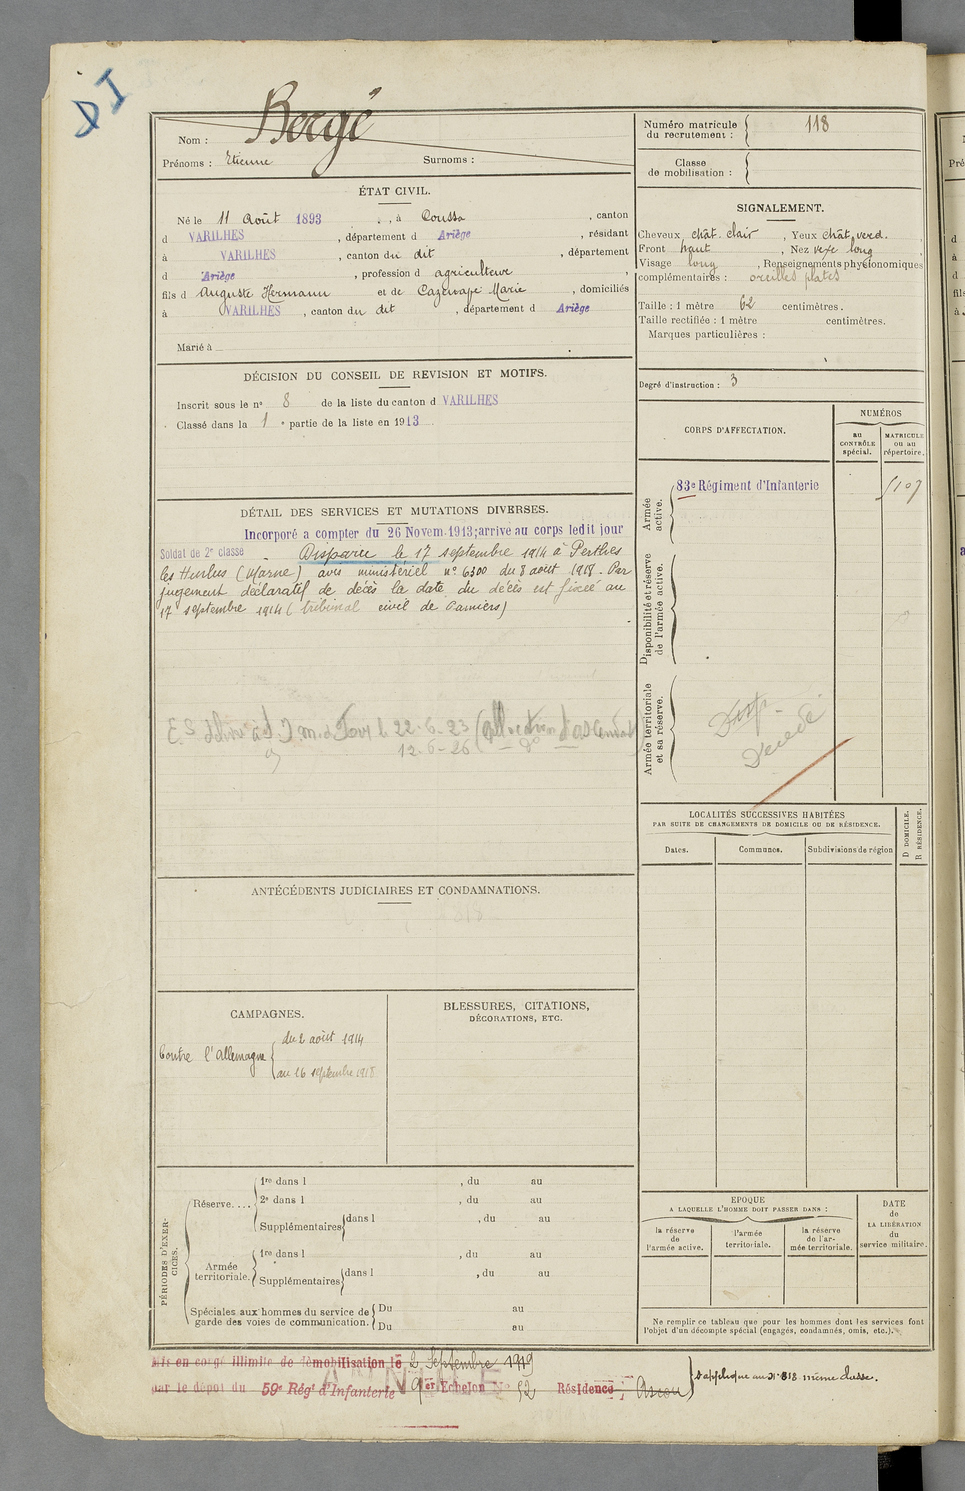 Bergé
Nom :
Prénoms : Etienne Surnoms :
ÉTAT CIVIL.
Né le 11 Août 1893 , à Coussa , canton
d VARILHES , département d Ariège , résidant
à VARILHES , canton du dit , département
d Ariège , profession d agriculteur ,
fils d Auguste Hermann et de Cazenave Marie , domiciliés
à VARILHES , canton du dit , département d Ariège
Marié à
DÉCISION DU CONSEIL DE REVISION ET MOTIFS.
Inscrit sous le nº 8 de la liste du canton d VARILHES
Classé dans la 1 e partie de la liste en 1913
DÉTAIL DES SERVICES ET MUTATIONS DIVERSES.
Incorporé a compter du 26 Novem. 1913; arrive au corps ledit jour
Soldat de 2e classe . Disparu le 17 septembre 1914 à Perthes
les Hurlus (Marne) avis ministériel nº 6300 du 8 août 1918. Par
jugement déclaratif de décès la date du décès est fixée au
17 septembre 1914 (tribunal civil de Pamiers)
E.S. délivré à le 22-6-23 (allocation d'ascendant)
12-6-26 - dº -
ANTÉCÉDENTS JUDICIAIRES ET CONDAMNATIONS.
CAMPAGNES.
Contre l'Allemagne { du 2 août 1914
au 16 septembre 1918
BLESSURES, CITATIONS,
DÉCORATIONS, ETC.
PÉRIODES D'EXERCICES.
Réserve....
1re dans l , du au
2e dans l , du au
Supplémentaires { dans l , du au
Armée
territoriale.
1re dans l , du au
Supplémentaires { dans l , du au
Spéciales aux hommes du service de { Du au
garde des voies de communication. { Du au
Mis en congé illimité de démobilisation le 2 Septembre 1919
par le dépôt du 59e Rég' d'Infanterie 9 er Echelon Nº 52 Résidence : Ascou
ANNULÉ
s'applique au nº 818 même classe.
DI
Numéro matricule
du recrutement : 118
Classe
de mobilisation :
SIGNALEMENT.
Cheveux chât. clair , Yeux chât. verd.
Front haut , Nez vexe long
Visage long , Renseignements physionomiques
complémentaires : oreilles plates
Taille : 1 mètre 62 centimètres.
Taille rectifiée : 1 mètre centimètres.
Marques particulières :
Degré d'instruction : 3
CORPS D'AFFECTATION.
NUMÉROS
au
CONTRÔLE
spécial.
MATRICULE
ou au
répertoire.
Armée
active.
83e Régiment d'Infanterie 5107
Disponibilité et réserve
de l'armée active.
Armée territoriale
et sa réserve.
Disp.
Décédé
LOCALITÉS SUCCESSIVES HABITÉES
PAR SUITE DE CHANGEMENTS DE DOMICILE OU DE RÉSIDENCE.
D DOMICILE.
R RÉSIDENCE.
Dates. Communes. Subdivisions de région
EPOQUE
A LAQUELLE L'HOMME DOIT PASSER DANS :
la réserve
de
l'armée active.
l'armée
territoriale.
la réserve
de l'ar-
mée territoriale.
DATE
de
LA LIBÉRATION
du
service militaire.
Ne remplir ce tableau que pour les hommes dont les services font
l'objet d'un décompte spécial (engagés, condamnés, omis, etc.).